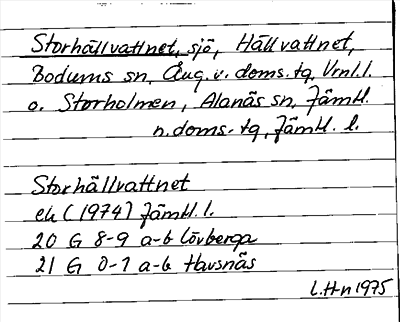 Storhällvattnet, sjö, Hällvattnet,
Bodums sn, Ång. v. doms. tg, Vrnl. l.
o. Storholmen, Alanäs sn, Jämtl.
n. doms. tg, Jämtl. l.
Storhällvattnet
ek (1974) Jämtl. l.
20 G 8-9 a-b Lövberga
21 G 0-1 a-b Havsnäs
L. H-n 1975